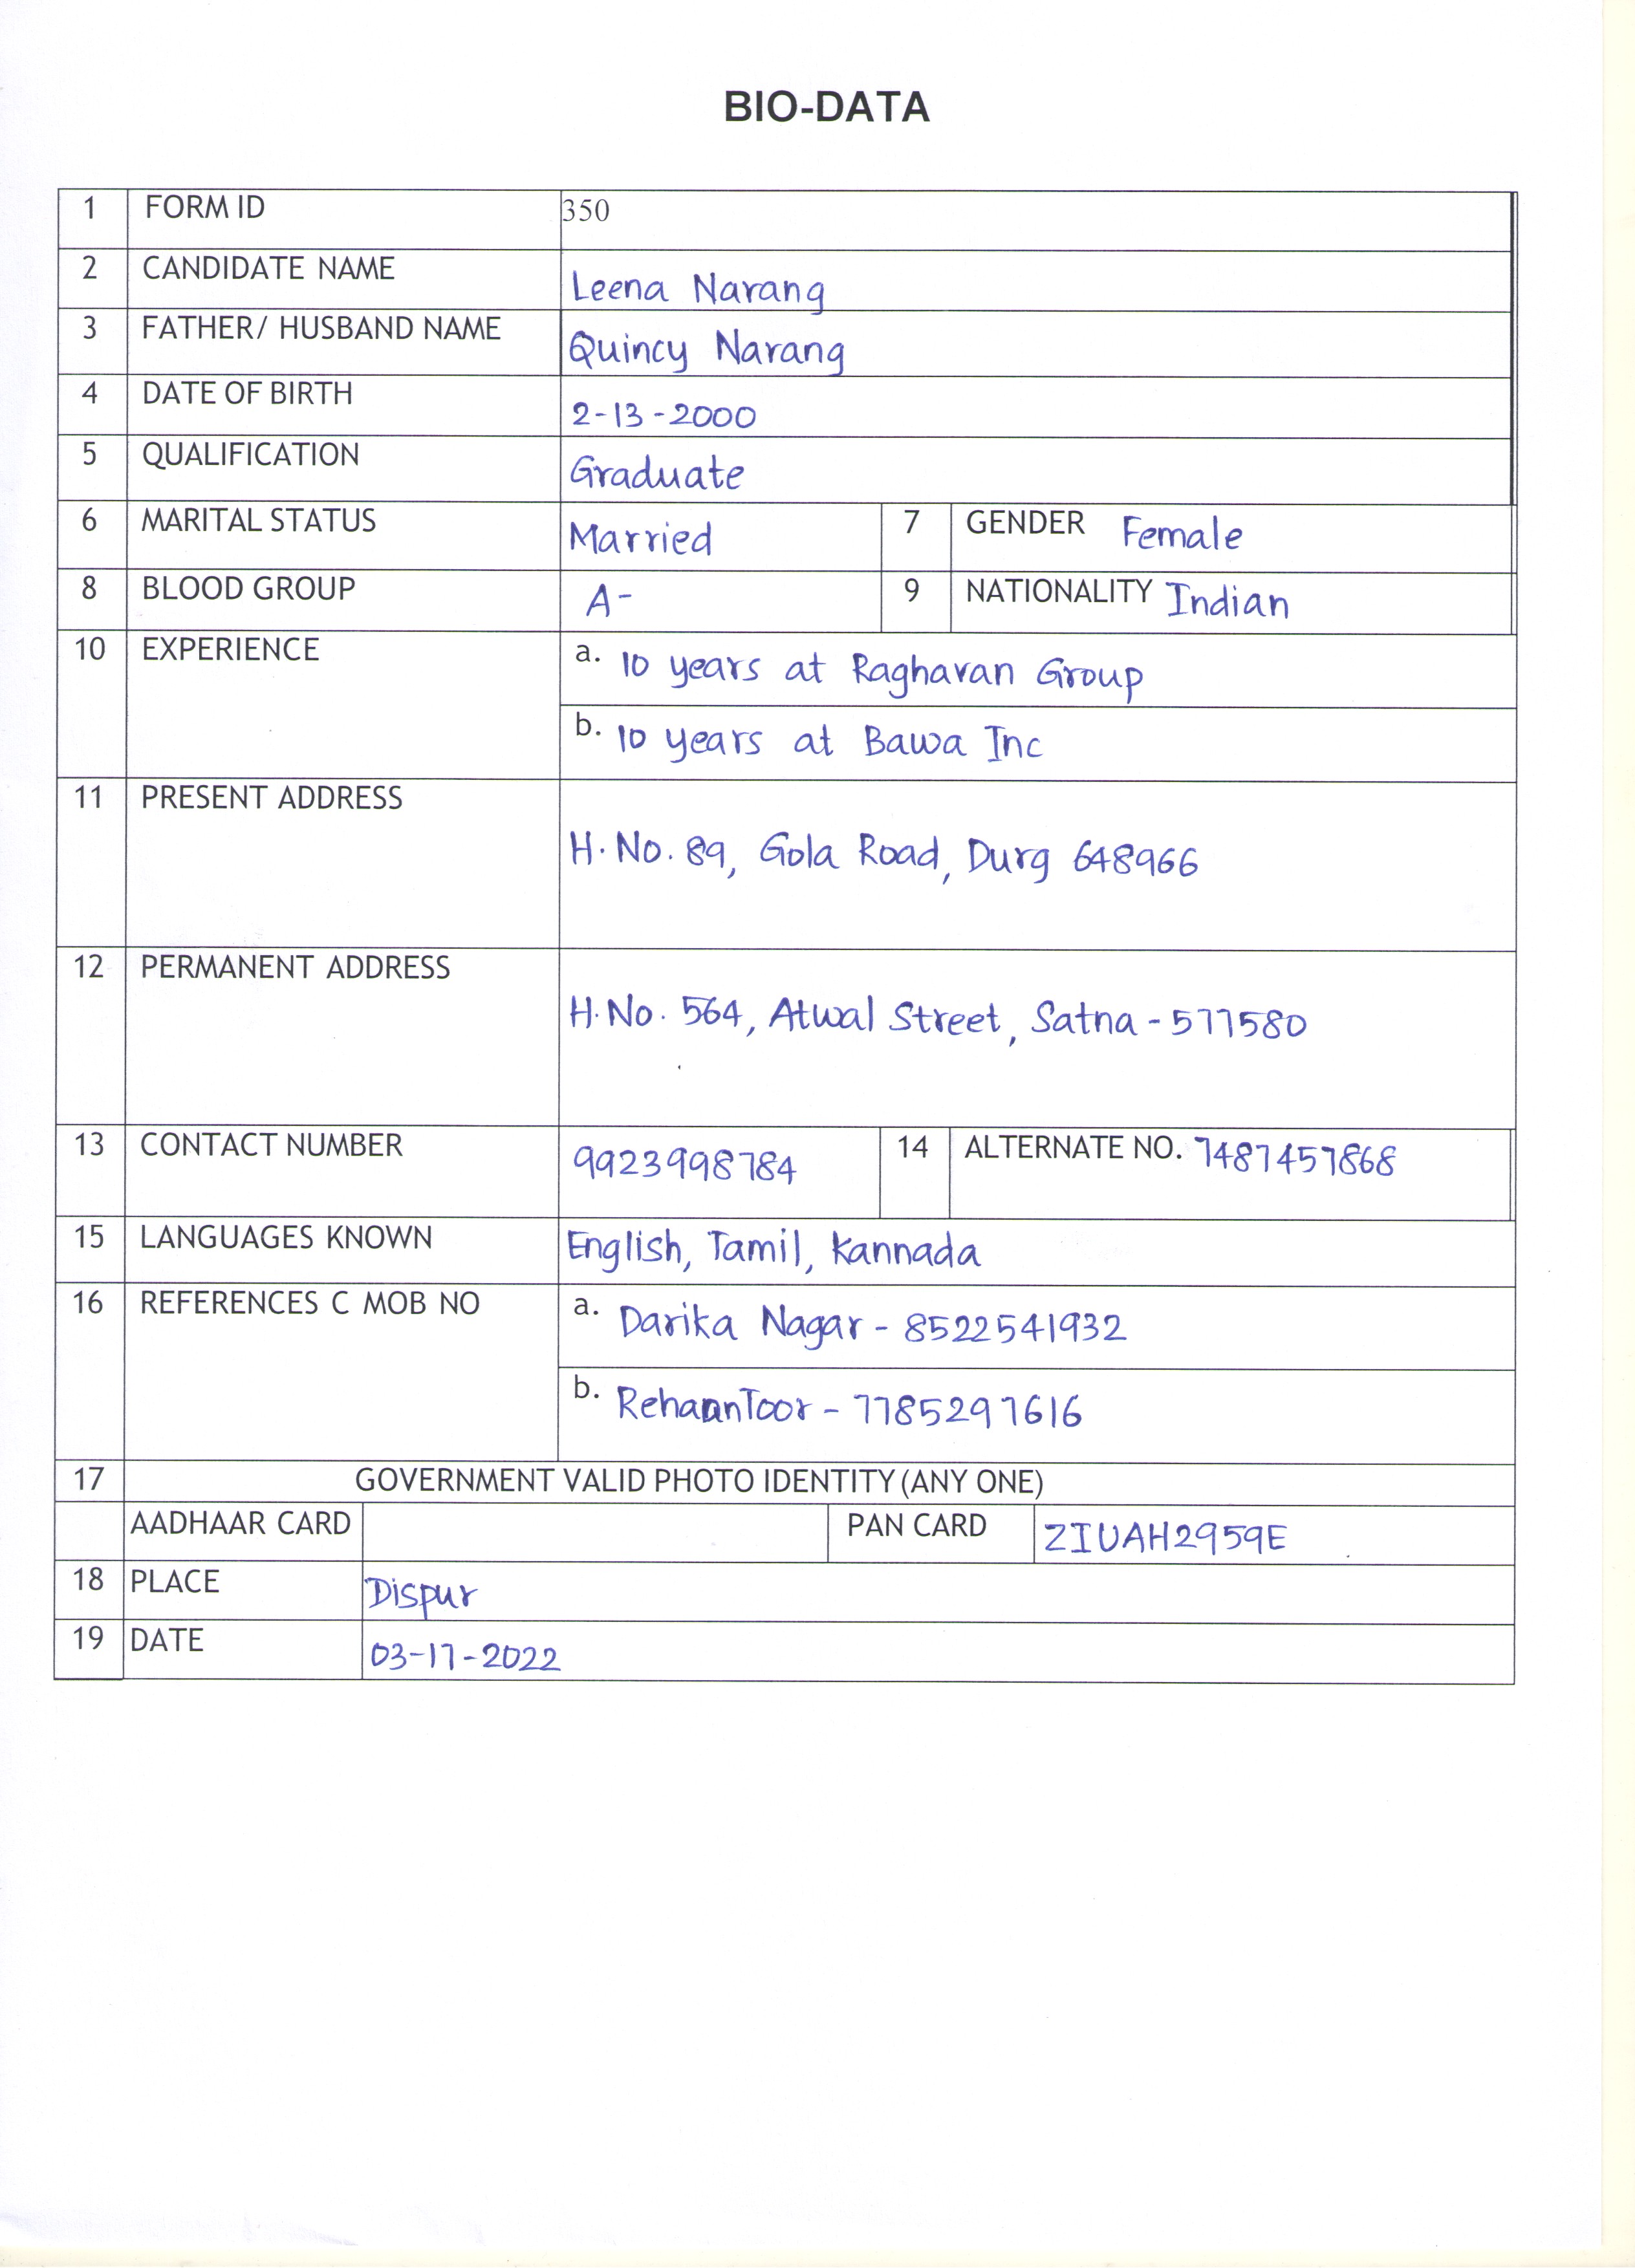 BIO-DATA
1 FORM ID 350
2 CANDIDATE NAME Leena Narang
3 FATHER/ HUSBAND NAME Quincy Narang
4 DATE OF BIRTH 2-13-2000
5 QUALIFICATION Graduate
6 MARITAL STATUS Married 7 GENDER Female
8 BLOOD GROUP A- 9 NATIONALITY Indian
10 EXPERIENCE a. 10 years at Raghavan Group
b. 10 years at Bawa Inc
11 PRESENT ADDRESS
H.No. 89, Gola Road, Durg 648966
12 PERMANENT ADDRESS
H.No. 564, Atwal Street, Satna - 577580
13 CONTACT NUMBER 9923998784 14 ALTERNATE NO. 7487457868
15 LANGUAGES KNOWN English, Tamil, Kannada
16 REFERENCES C MOB NO a. Darika Nagar - 8522541932
b. Rehaan Toor - 7785297616
17 GOVERNMENT VALID PHOTO IDENTITY (ANY ONE)
AADHAAR CARD PAN CARD ZIUAH2959E
18 PLACE Dispur
19 DATE 03-17-2022